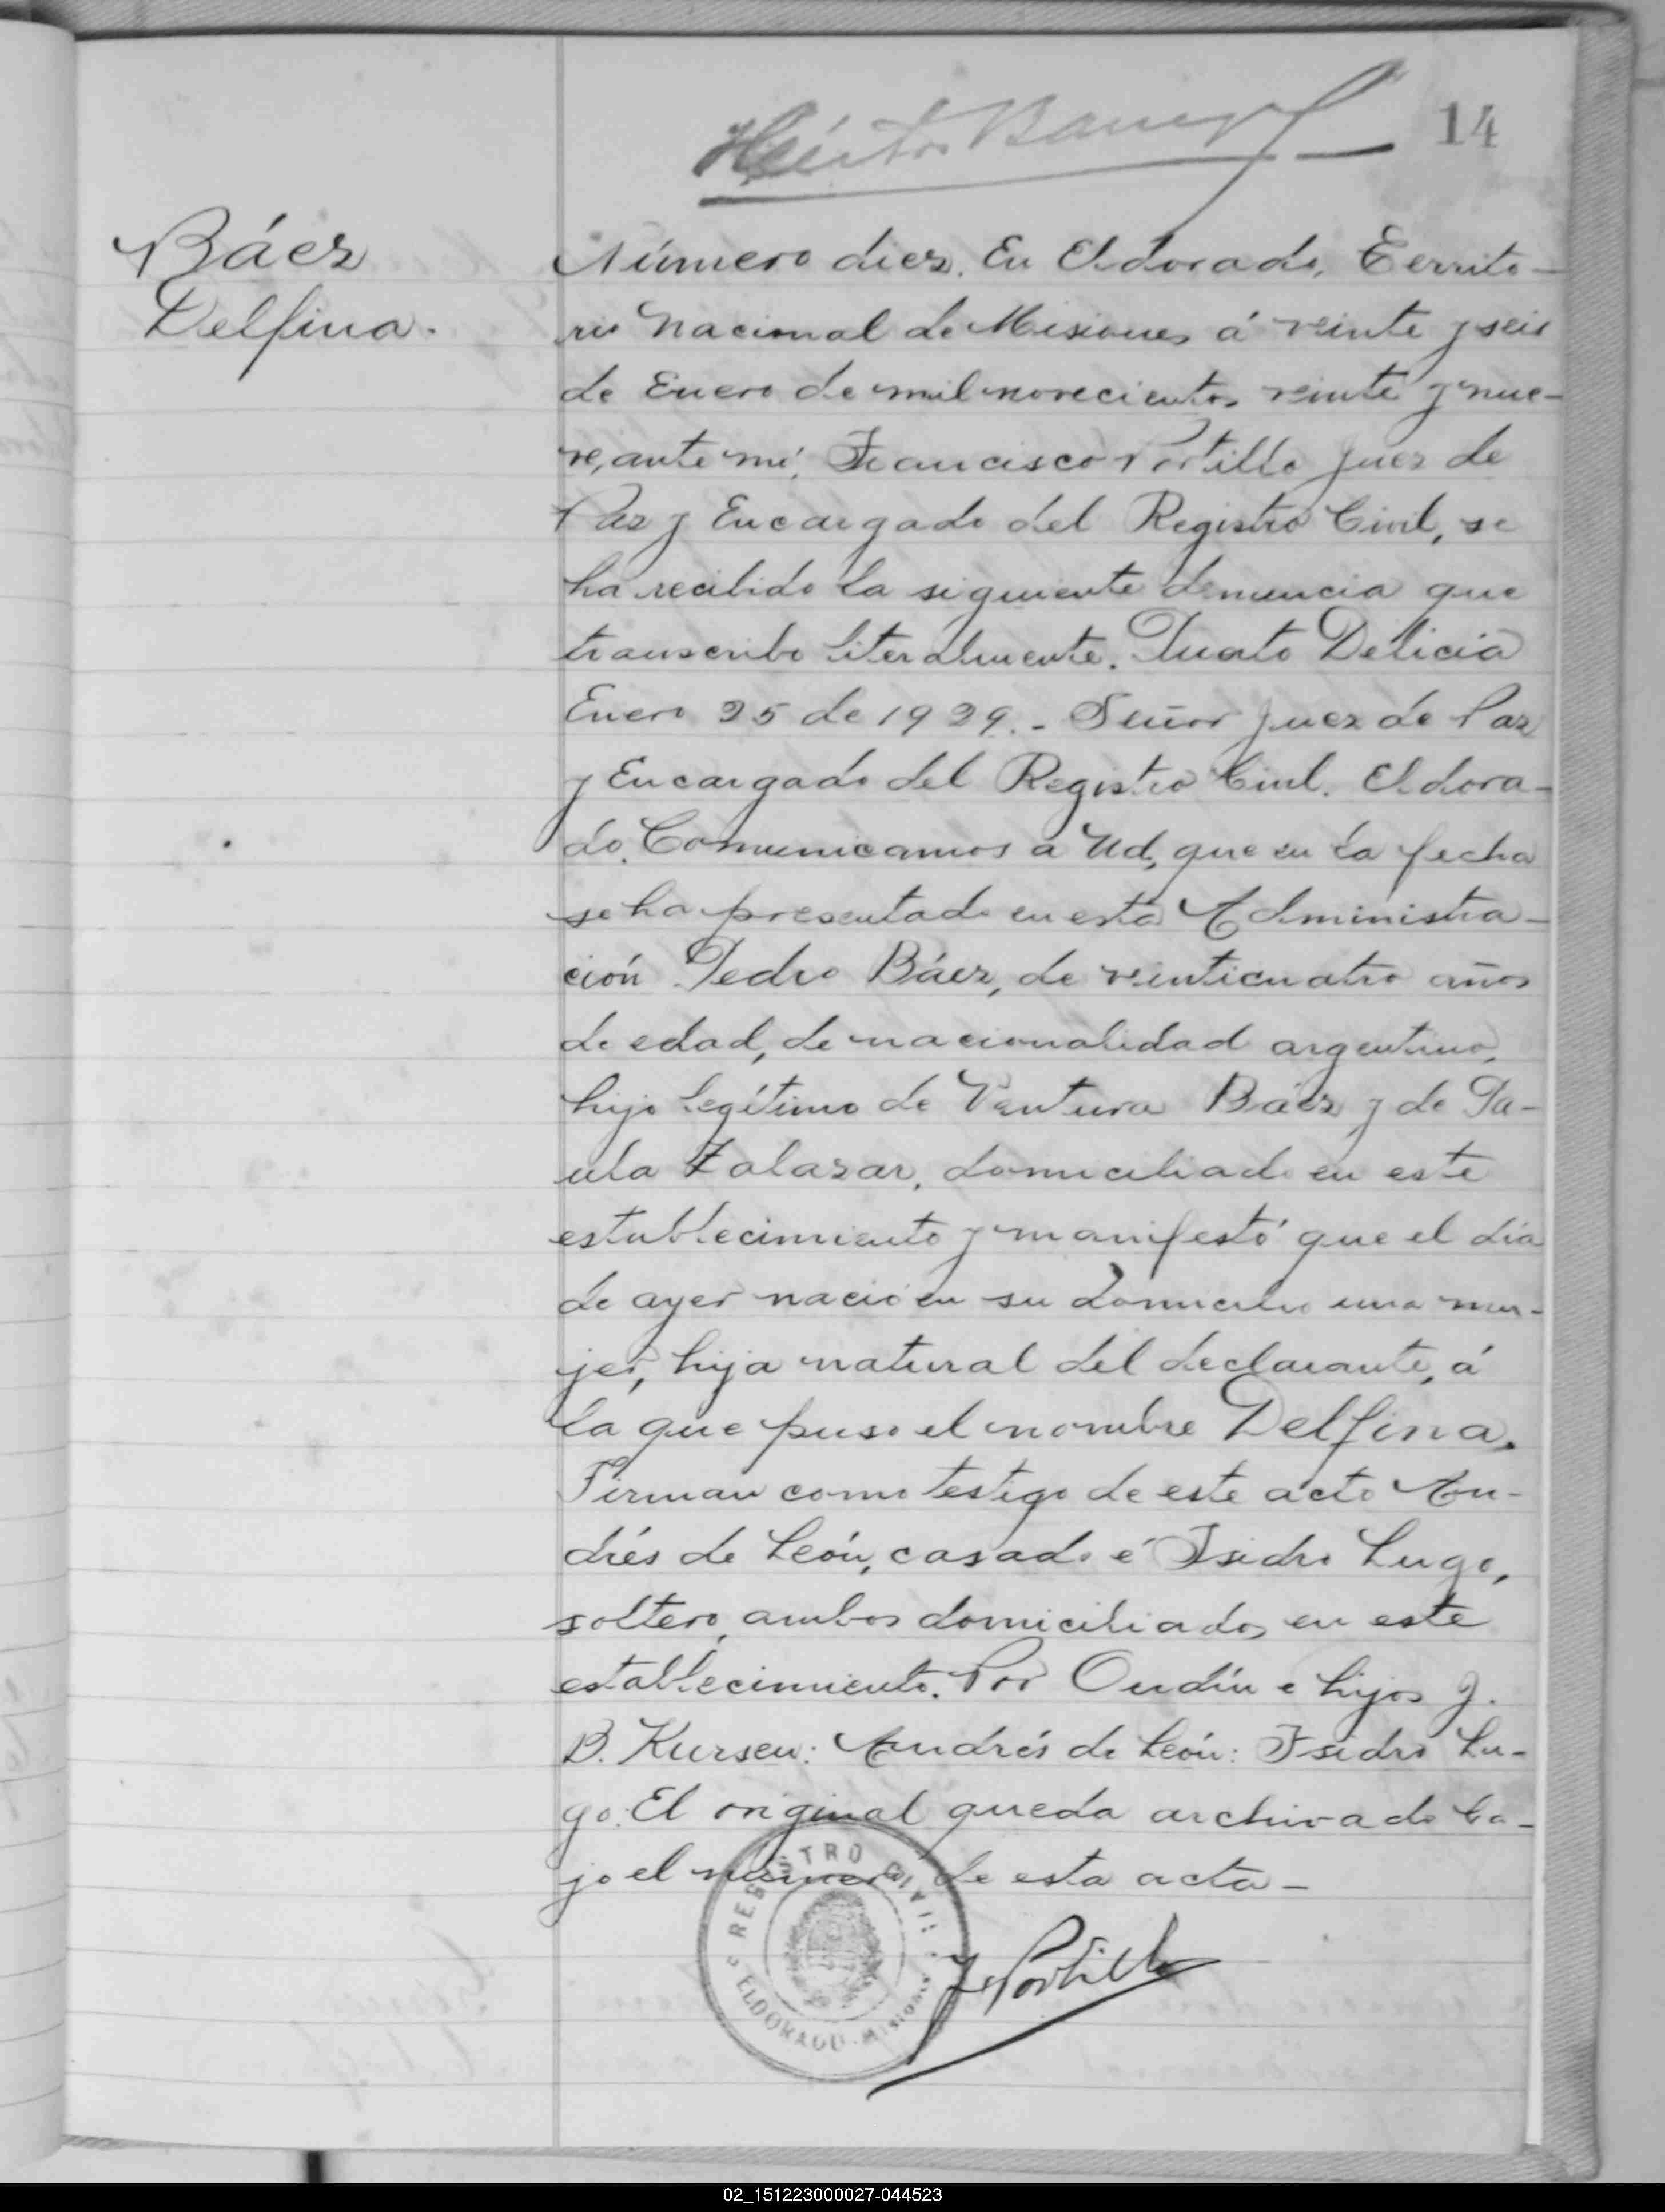 14
Báez
Delfina.
Número diez. En Eldorado, Territo-
rio Nacional de Misiones á veinte y seis
de Enero de mil novecientos veinte y nue-
ve, ante mí, Francisco Portillo Juez de
Paz y Encargado del Registro Civil, se
ha recibido la siguiente denuncia que
transcribo literalmente. Puerto Delicia
Enero 25 de 1929.- Señor Juez de Paz
y Encargado del Registro Civil. Eldora-
do. Comunicamos a Ud, que en la fecha
se ha presentado en esta Administra-
ción Pedro Báez, de veinticuatro años
de edad, de nacionalidad argentino,
hijo legítimo de Ventura Báez y de Pa-
ula Zalazar, domiciliado en este
establecimiento y manifestó que el día
de ayer nació en su domicilio una mu-
jer, hija natural del declarante, á
la que puso el nombre Delfina.
Firman como testigo de este acto An-
drés de León, casado é Isidro Lugo,
soltero, ambos domiciliados en este
establecimiento. Por e hijos J.
B. Kursen: Andrés de León: Isidro Lu-
go. El original queda archivado ba-
jo el número de esta acta-
REGISTRO CIVIL
ELDORADO - MISIONES
F Portillo
02_151223000027-044523